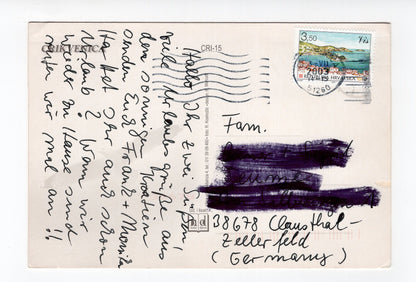 CRIKVENICA
CRI-15
Hallo Ihr zwei Süßen,
viele Urlaubsgrüße aus
dem sonnigen Kroatien
senden Euch Frank + Monika
Habt Ihr auch schon
Urlaub? Wenn wir
wieder zu Hause sind
rufen wir mal an!!
3,50
HRVATSKA
2003
51260
Fam.
38678 Clausthal-
Zellerfeld
(Germany)